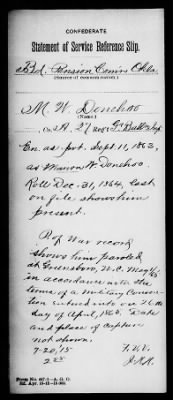 CONFEDERATE
Statement of Service Reference Slip.
Bd. Pension Com'rs Okla.
(Source of communication)
M. W. Donehoo
(Name)
Co. A. 27 REG'T Ga.
En. as pvt. Sept. 11, 1863,
as Marion W. Donehoo.
Roll Dec. 31, 1864, last
on file shows him
present.
P. of War record
shows him paroled
at Greensboro, N.C. May 1/65
in accordance with the
terms of a Military Conven-
tion entered into on 26th
day of April, 1865. Date
and place of capture
not shown.
7-20,'15